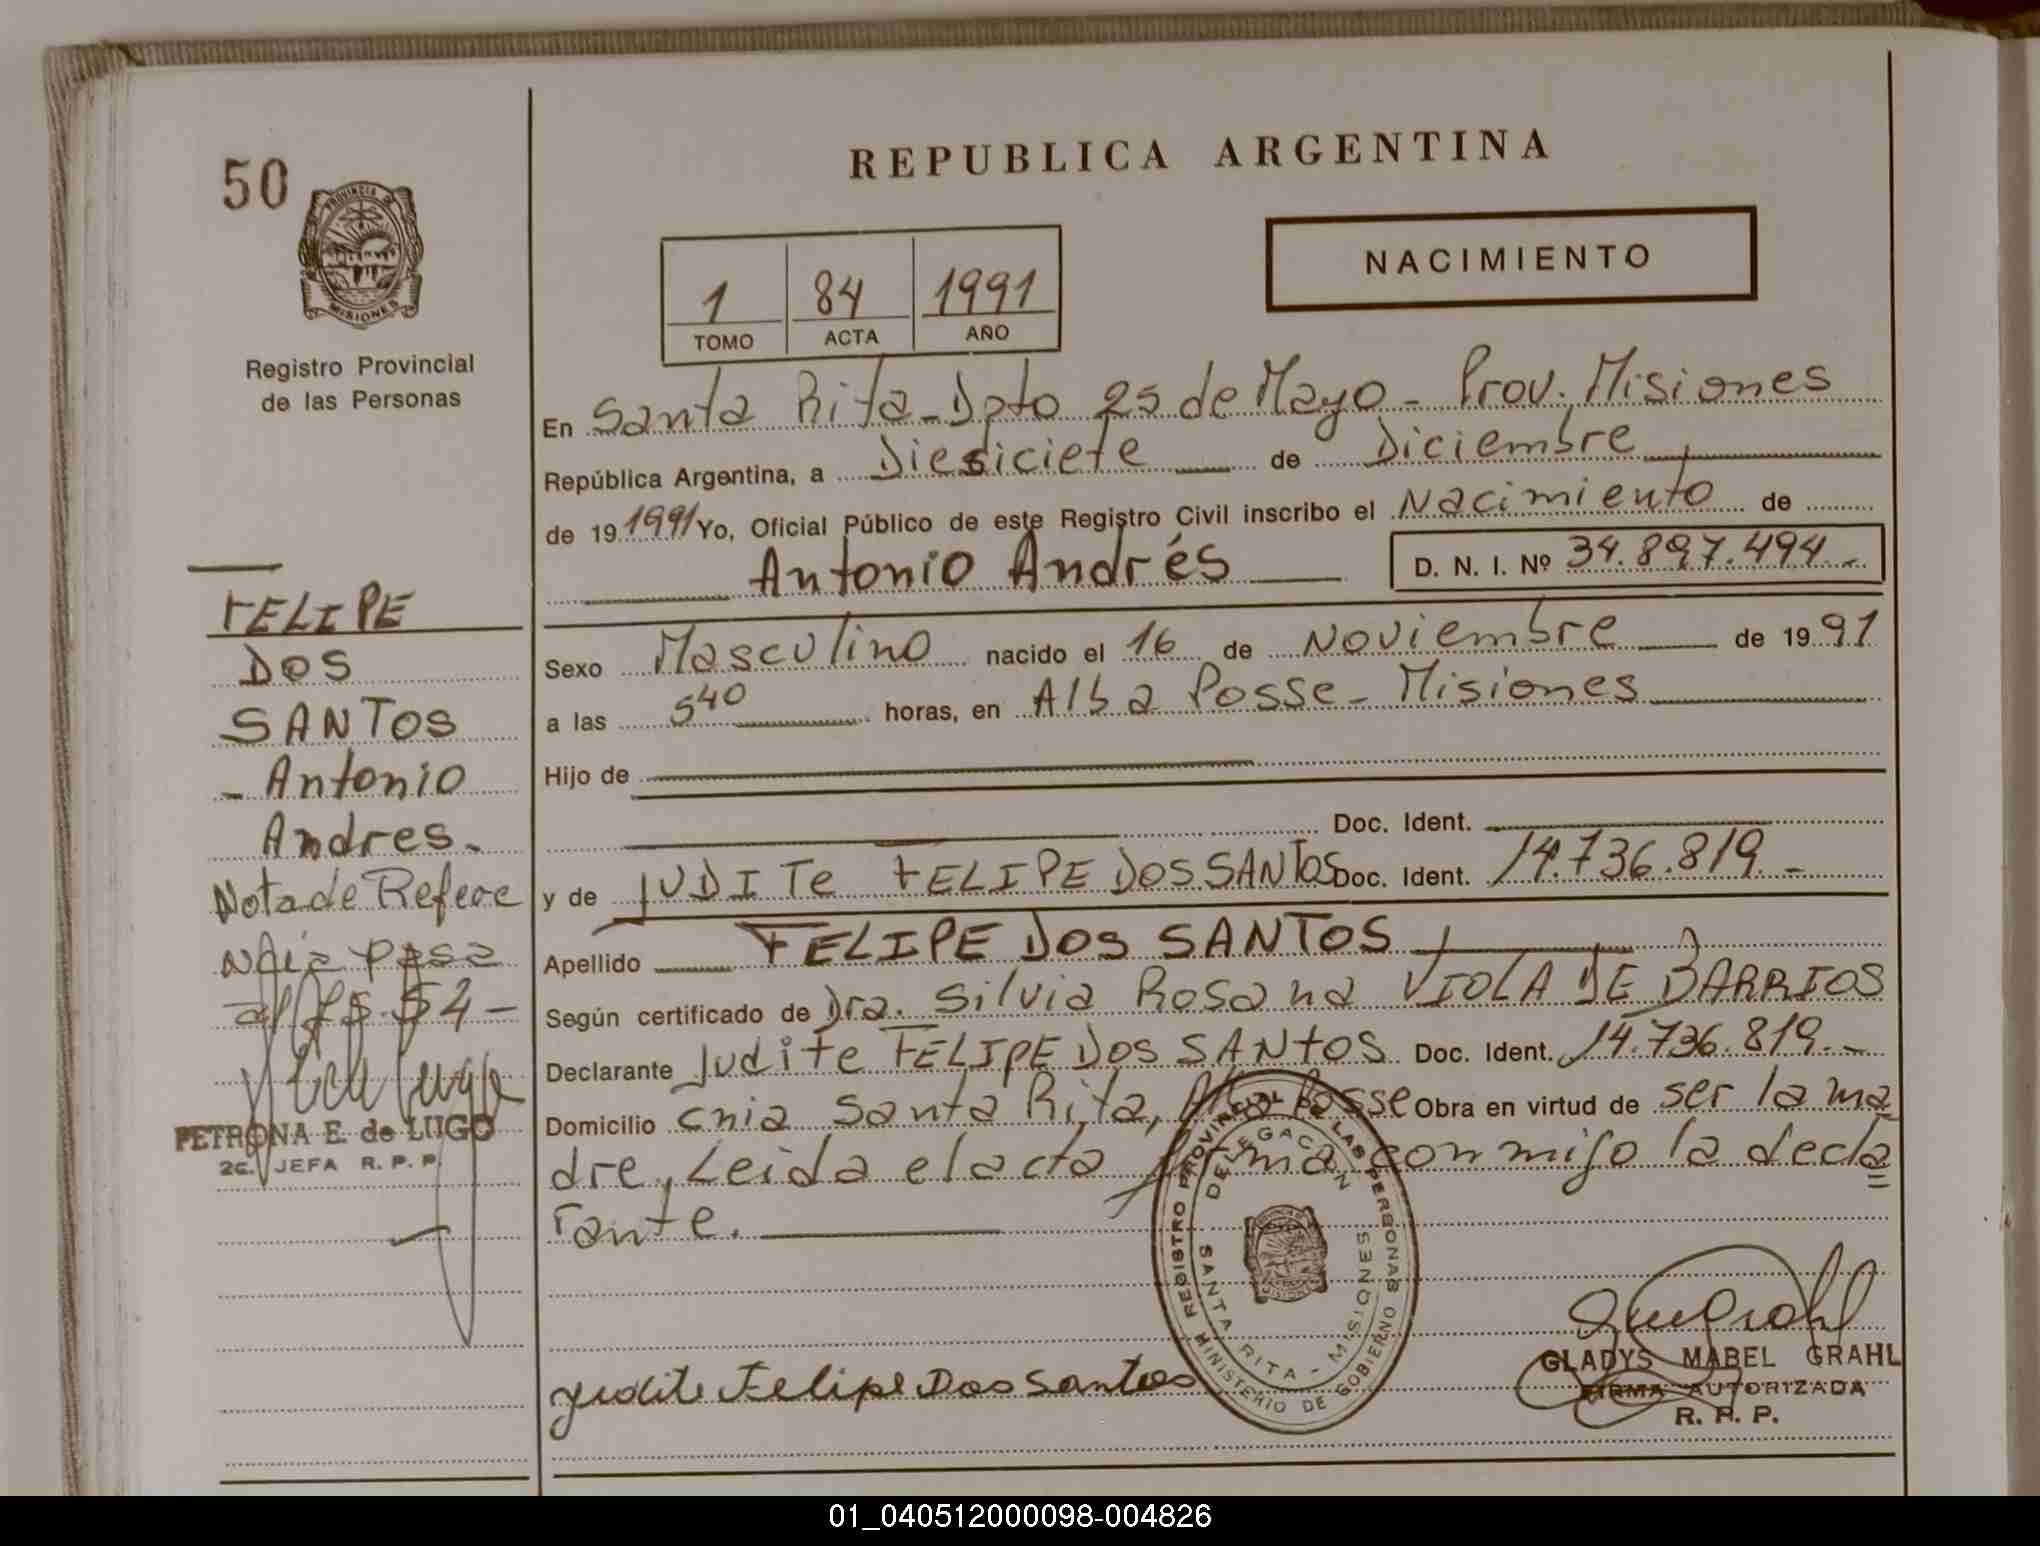 50
PROVINCIA DE
MISIONES
Registro Provincial
de las Personas
REPUBLICA ARGENTINA
NACIMIENTO
1 84 1991
TOMO ACTA AÑO
En Santa Rita - Dpto 25 de Mayo - Prov. Misiones
República Argentina, a Diesiciete de Diciembre
de 19 1991 Yo, Oficial Público de este Registro Civil inscribo el Nacimiento de
Antonio Andrés D. N. I. Nº 34.897.494.-
Sexo Masculino nacido el 16 de Noviembre de 19 91
a las 5 40 horas, en Alba Posse - Misiones
Hijo de
Doc. Ident.
y de JUDITe FELIPE DOS SANTOS Doc. Ident. 14.736.819.-
Apellido FELIPE DOS SANTOS
Según certificado de Dra. Silvia Rosana VIOLA DE BARRIOS
Declarante Judite FELIPE DOS SANTOS Doc. Ident. 14.736.819.-
Domicilio cnia Santa Rita, Alba Posse Obra en virtud de ser la ma
dre, Leida el acta firma conmigo la decla
rante.
FELIPE
DOS
SANTOS
- Antonio
Andres.
Nota de Refere
ncia pasa
al
PETRONA E. de LUGO
JEFA R. P. P.
REGISTRO PROVINCIAL DE LAS PERSONAS
MINISTERIO DE GOBIERNO
DELEGACION
SANTA RITA - MISIONES
Judite Felipe Dos Santos
GLADYS MABEL GRAHL
FIRMA AUTORIZADA
R. P. P.
01_040512000098-004826